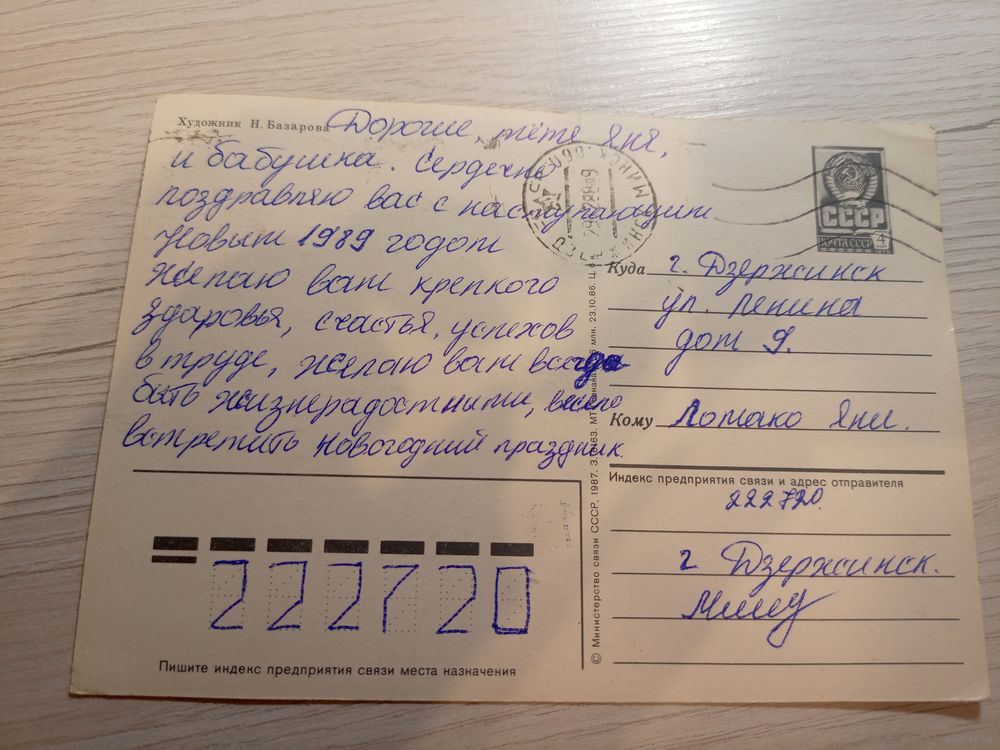 Художник Н. Базарова
Дорогие, тётя Яня,
и бабушка. Сердечно
поздравляю вас с наступающим
Новым 1989 годом
желаю вам крепкого
здоровья, счастья, успехов
в труде, желаю вам всегда
быть жизнерадостными, весело
встретить новогодний праздник.
СССР
ПОЧТА СССР 4
Куда г. Дзержинск
ул. Ленина
дом 9.
Кому Лотако Яня.
Индекс предприятия связи и адрес отправителя
222720.
г Дзержинск.
222720
Пишите индекс предприятия связи места назначения
© Министерство связи СССР, 1987. 23.10.86.